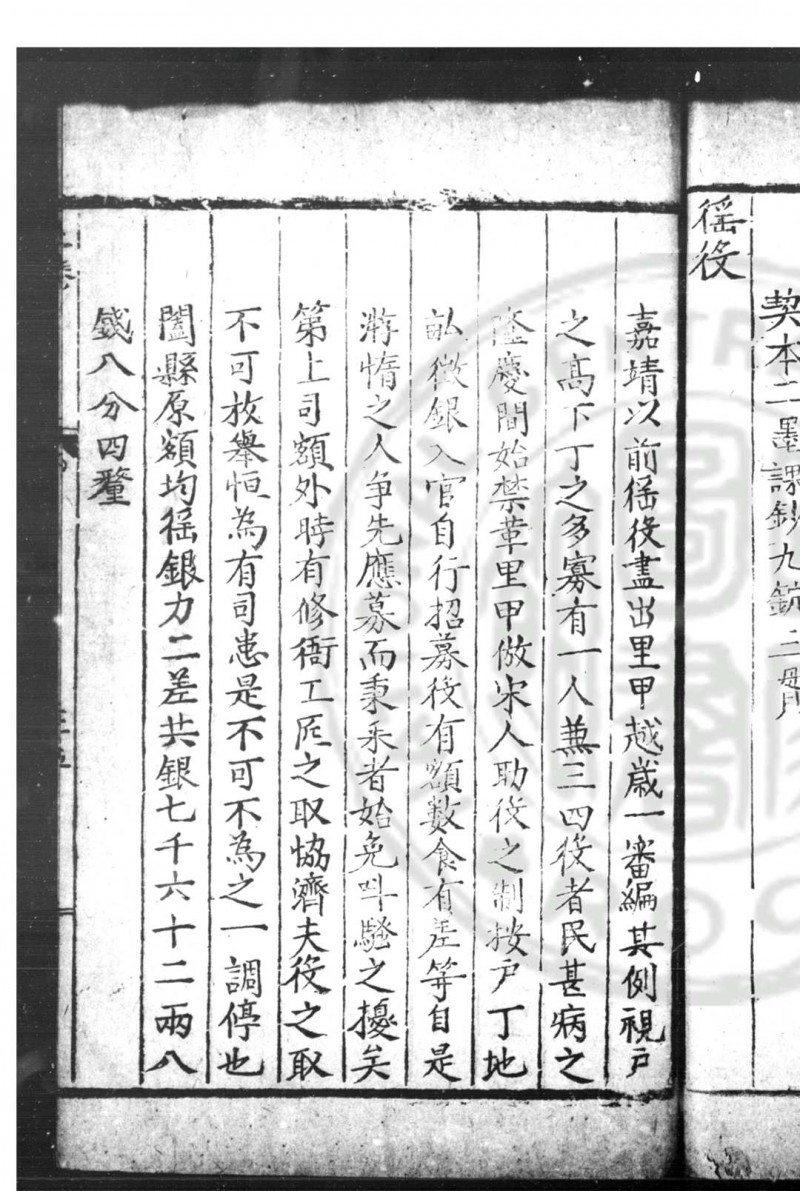 徭役
契本二墨課鈔九錠三貫
嘉靖以前徭役盡出里甲越歲一審編其例視戸
之高下丁之多寡有一人兼三四役者民甚病之
隆慶間始禁革里甲倣宋人助役之制按戸丁地
畆徵銀入官自行招募役有額數食有差等自是
游惰之人争先應募而秉耒者始免呌騷之擾矣
第上司額外時有修衙工匠之取協濟夫役之取
不可枚舉恒為有司患是不可不為之一調停也
闔縣原額均徭銀力二差共銀七千六十二兩八
錢八分四釐